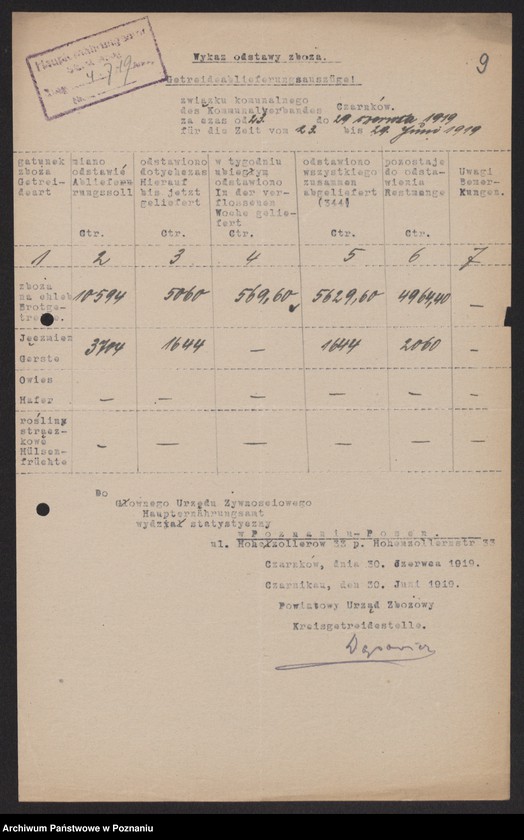 Hauptnahrungsamt
4.7.19
9
Wykaz odstawy zboża.
Getreideablieferungsauszüge!
związku komunalnego
des Kommunalverbandes Czarnków.
za czas od 23. do 29 czerwca 1919
für die Zeit vom 23 bis 29. Juni 1919
gatunek zboża Getrei- deart
miano odstawić Ablieferu rungssoll Ctr.
odstawiono dotychczas Hierauf bis jetzt geliefert Ctr.
w tygodniu ubiegłym odstawiono In der ver- flossenen Woche gelie- fert Ctr.
odstawiono wszystkiego zusammen abgeliefert (3+4) Ctr.
pozostaje do odsta- wienia Restmenge Ctr.
Uwagi Bemer- kungen.
1 2 3 4 5 6 7
zboża na chleb Brotge- treide. 10594 5060 569,60 5629,60 4964,40 —
Jęczmień Gerste 3704 1644 — 1644 2060 —
Owies Hafer — — — — — —
rośliny strącz- kowe Hülsen- früchte — — — — — —
Do
Głownego Urzędu Zywnosciowego
Haupternährungsamt
wydział statystyczny
w Poznaniu-Posen.
ul. Hohenzollerow 33 p. Hohenzollernstr 33
Czarnków, dnia 30. czerwca 1919.
Czarnikau, den 30. Juni 1919.
Powiatowy Urząd Zbożowy
Kreisgetreidestelle.
Archiwum Państwowe w Poznaniu